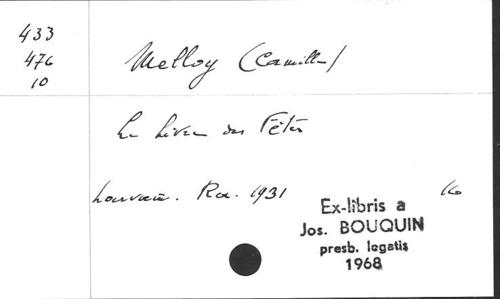 433
476
10
Melloy (Camille)
Le Livre des Fêtes
Louvain. Rex. 1931
16
Ex-libris a
Jos. BOUQUIN
presb. legatis
1968